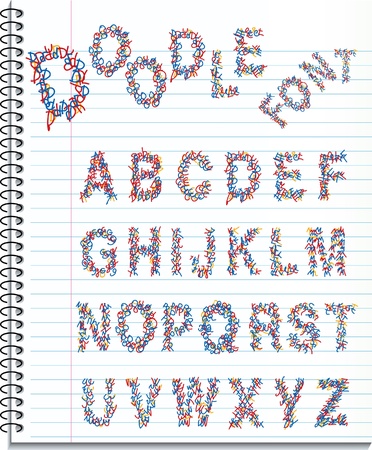 DOODLE FONT
ABCDEF
GHIJKLM
NOPQRST
UVWXYZ